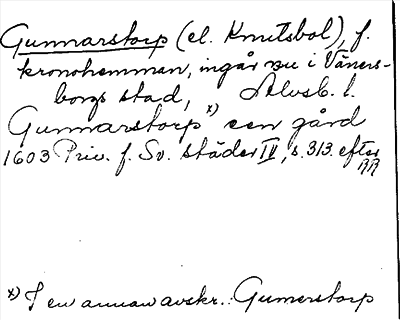 Gunnarstorp (el. Knutsbol), f.
kronohemman, ingår nu i Väners-
borgs stad, Älvsb. l.
Gunnarstorp x) een gård
1603 Priv. f. Sv. städer IV, s. 313. efter
RR
x) I en annan avskr.: Gumerstorp